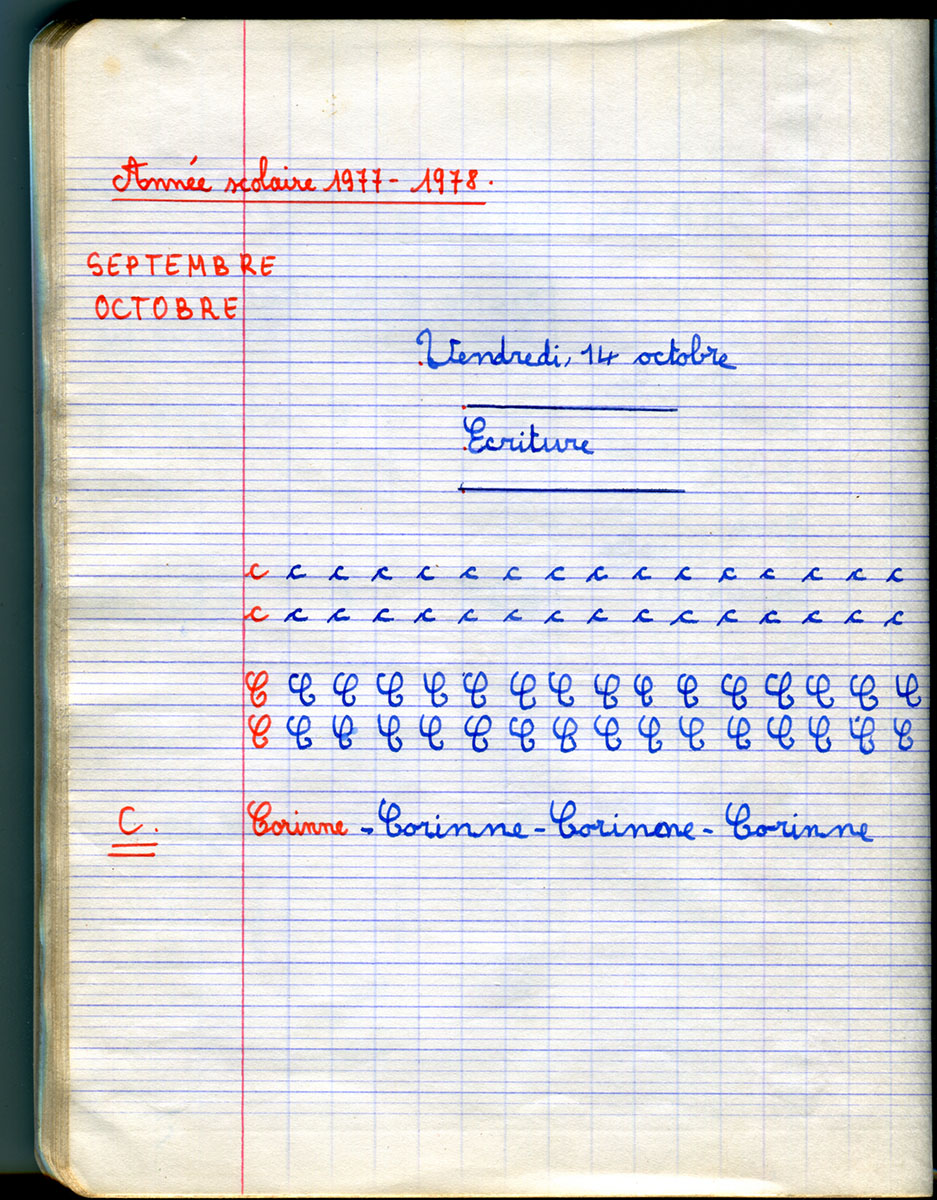 Année scolaire 1977-1978.
SEPTEMBRE
OCTOBRE
Vendredi, 14 octobre
Ecriture
c c c c c c c c c c c c c c c c
c c c c c c c c c c c c c c c c
C C C C C C C C C C C C C C C C
C C C C C C C C C C C C C C C C
C. Corinne - Corinne - Corinne - Corinne